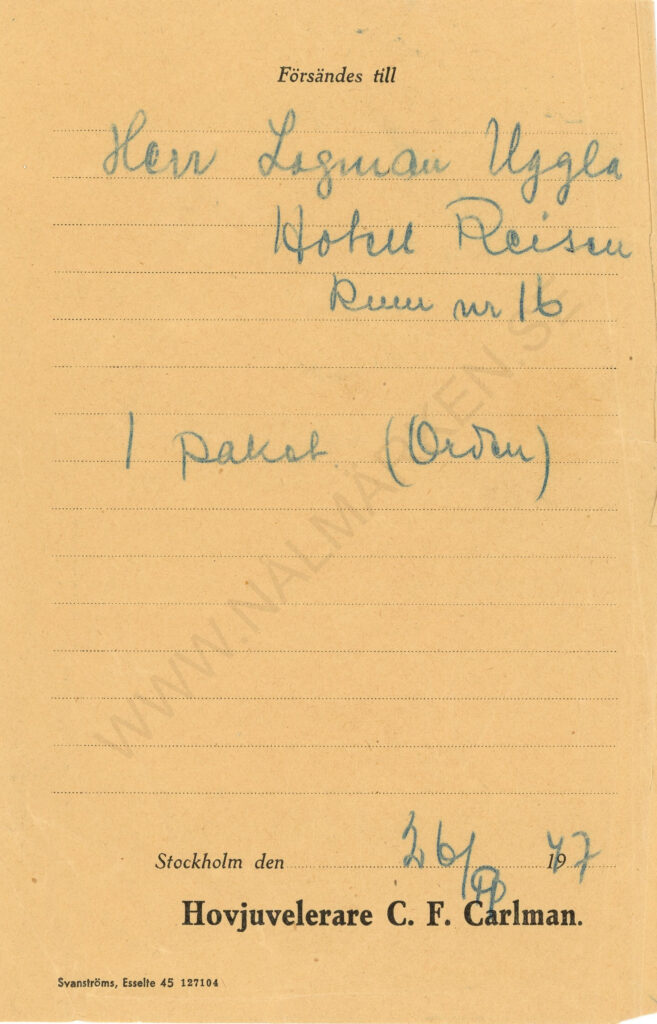 Försändes till
Herr Lagman Uggla
Hotell Reisen
Rum nr 16
1 paket (Orden)
WWW.NALMÄRKEN.SE
Stockholm den 26/ 1947
Hovjuvelerare C. F. Carlman.
Svanströms, Esselte 45 127104